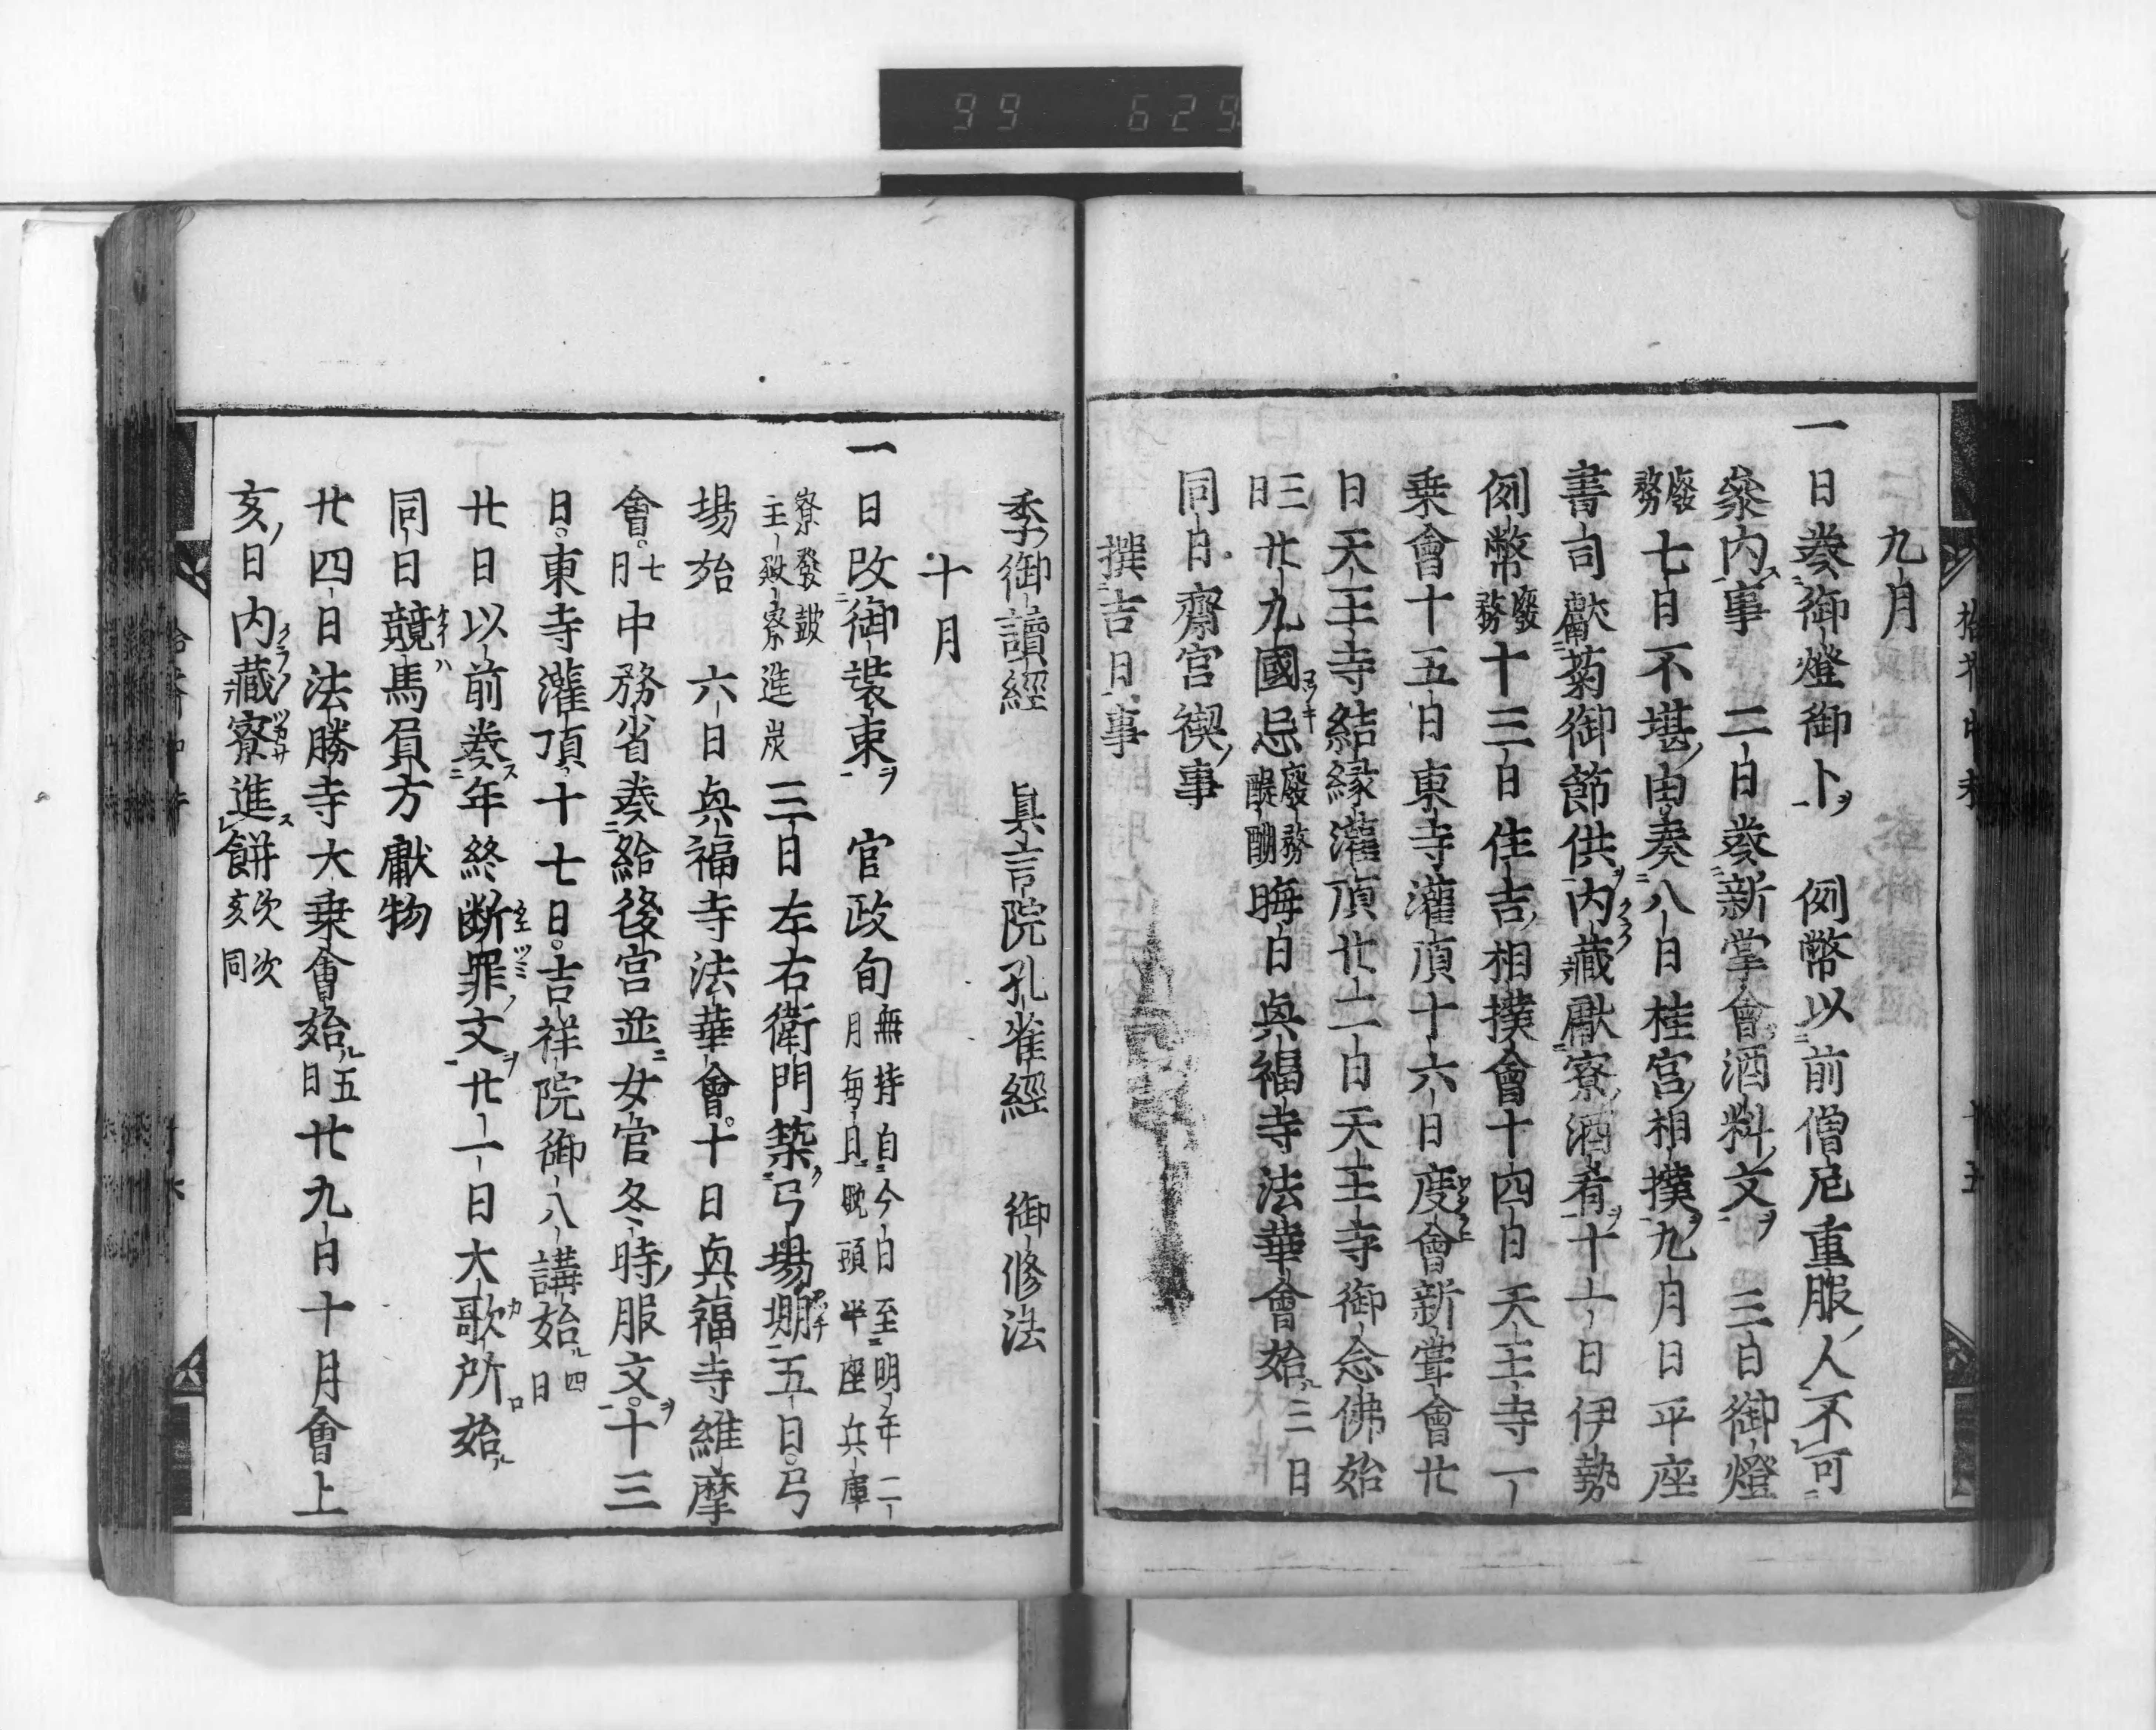 99 629
九月
一日奏御燈御卜ヲ 例幣以前僧尼重服ノ人不可
參内ノ事 二日奏新掌會酒料ノ文ヲ 三日御燈
廢務 七日不堪ノ由奏 八日桂宮ノ相撲ヲ 九月日平座
書司獻菊御節供ヲ内藏獻寮ノ酒肴ヲ 十一日伊勢
例幣廢務 十三日住吉ノ相撲會 十四日天王寺一
乗會 十五日東寺灌頂 十六日度會新嘗會 廿
日天王寺結縁灌頂 廿一日天王寺御念佛始
三日 廿九國忌廢務醍醐 晦日奥福寺法華會始ル三日
同日齋宮禊ノ事
撰吉日事
季御讀經 眞言院孔雀經 御修法
十月
一日改御装束ヲ 官政旬無持自今日至明年二月毎日晩頭半座兵庫
寮發鼓主殿寮進炭 三日左右衛門築ク弓場堋 五日弓
場始 六日奥福寺法華會 十日奥福寺維摩
會七日 中務省奏給後宮並ニ女官冬時ノ服文ヲ 十三
日東寺灌頂 十七日吉祥院御八講始ル四日
廿日以前奏ス年終断罪ノ文ヲ 廿一日大歌所始ル
同日競馬負方獻物
廿四日法勝寺大乗會始ル五日 廿九日十月會上
亥ノ日内藏寮進ス餅次次亥同